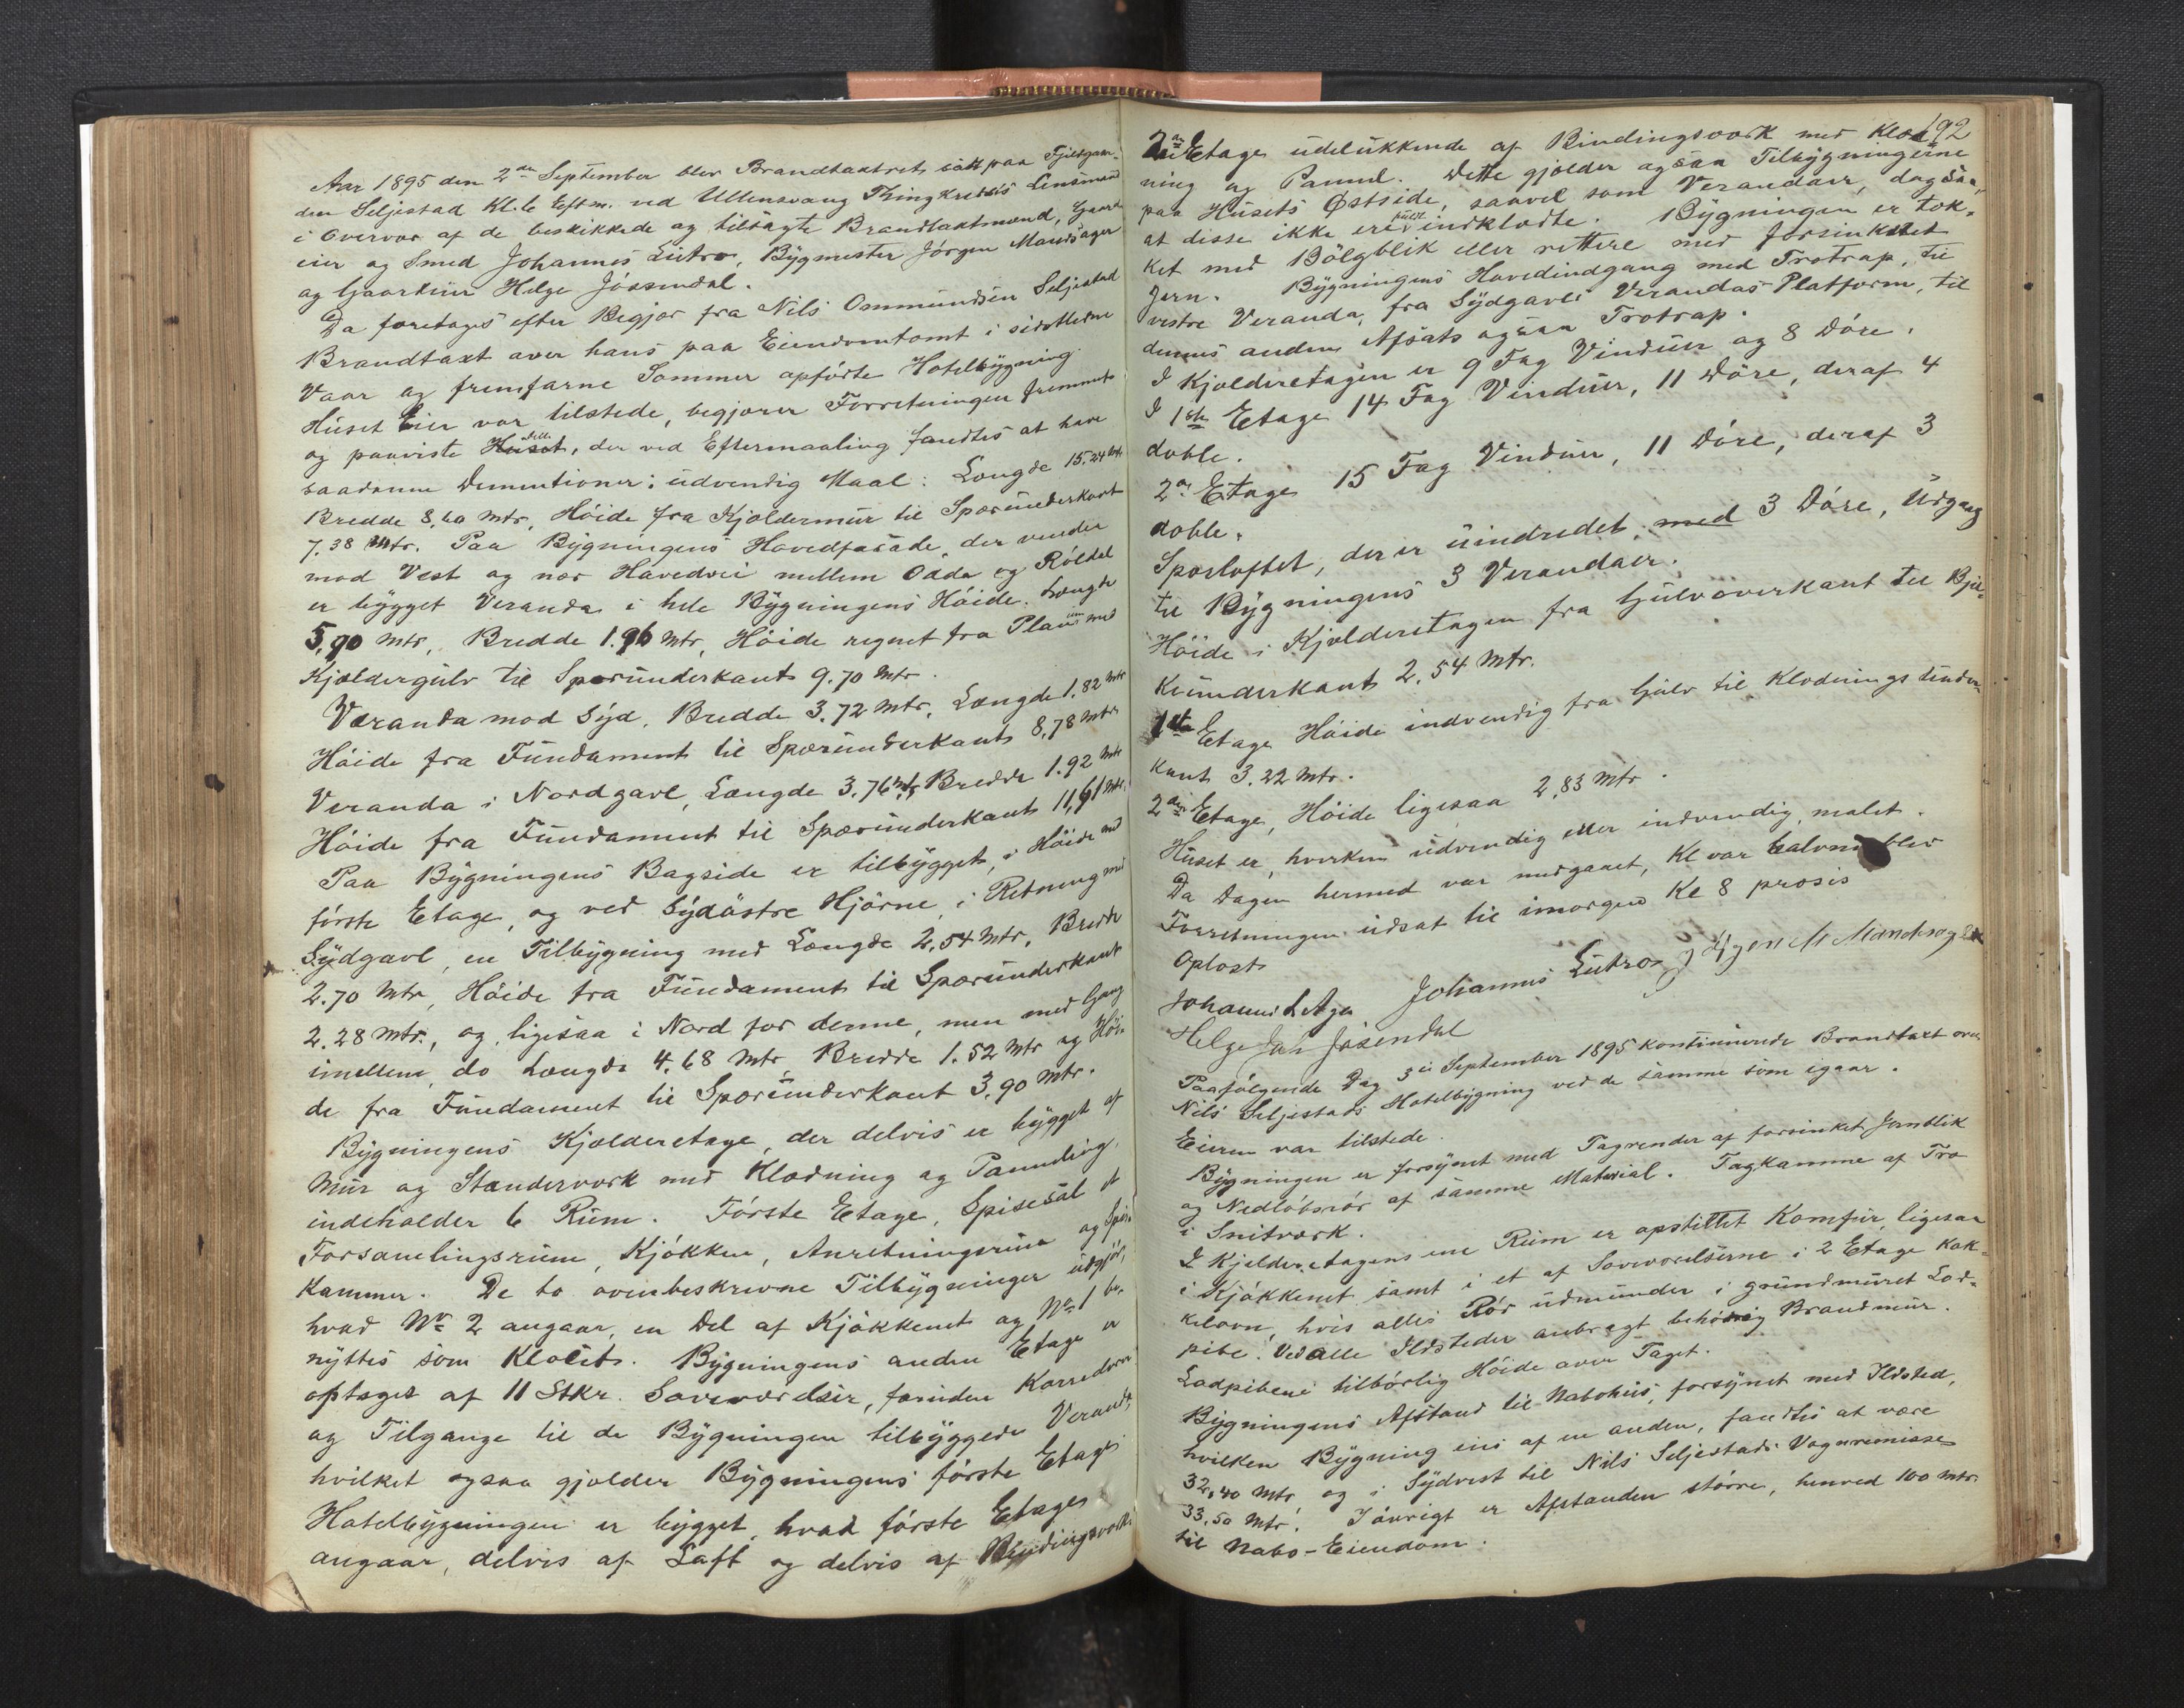 Aar 1895 den 2den September blev Brandtaxtret satt paa Fjeldgaar-
den Seljestad Kl. 6 Eftm. ved Ullensvang Thingkredses Lensmand
i Overvær af de beskikkede og tilsagte Brandtaxtmænd, Gaard-
eier og Smed Johannes Lutro, Bygmester Jørgen Mandsager
og Gaardeier Helge Jøsendal.
Da foretoges efter Begjær fra Nils Ommundsen Seljestad
Brandtaxt over hans paa Eiendomstomt i sidstledne
Vaar og fremfarne Sommer opførte Hotelbygning
Huset Eier var tilstede, begjærer Forretningen fremmet
og paaviste Huset, der ved Eftermaaling fandtes at have
saadanne Dementioner: udvendig Maal: Længde 15.24 Mtr
Bredde 8,60 Mtr, Høide fra Kjældermur til Sperunderkant
7.38 Mtr. Paa Bygningens Hovedfasade, der vender
mod Vest og nær Hovedvei mellem Odda og Røldal
er bygget Veranda i hele Bygningens Høide. Længde
5,90 Mtr, Bredde 1.96 Mtr, Høide regnet fra Planum med
Kjældergulv til Sperunderkant 9.70 Mtr.
Veranda mod Syd, Bredde 3.72 Mtr, Længde 1.82 Mtr
Høide fra Fundament til Sperunderkant 8,78 Mtr
Veranda i Nordgavl, Længde 3.76 Mtr, Bredde 1.92 Mtr
Høide fra Fundament til Sperunderkant 11,61 Mtr.
Paa Bygningens Bagside er tilbygget, i Høide med
første Etage, og ved Sydøstre Hjørne, i Retning med
Sydgavl, en Tilbygning med Længde 2.54 Mtr, Bredde
2.70 Mtr, Høide fra Fundament til Sperunderkant
2.28 Mtr., og ligesaa i Nord for denne, men med Gang
imellem, do Længde 4.68 Mtr, Bredde 1.52 Mtr og Høi-
de fra Fundament til Sperunderkant 3.90 Mtr.
Bygningens Kjælderetage, der delvis er bygget af
Mur og Standerverk med Klædning og Panneling,
indeholder 6 Rum. Første Etage, Spisesal et
Forsamlingsrum, Kjøkken, Anretningsrum og Spis-
kammer. De to ovenbeskrevne Tilbygninger udgjør,
hvad No 2 angaar, en Del af Kjøkkenet og No 1 be-
nyttes som Kloset. Bygningens anden Etage er
optaget af 11 Stkr. Soveværelser, foruden Korredorer
og Tilgange til de Bygningen tilbyggede Verand.
hvilket ogsaa gjælder Bygningens første Etage
Hotelbygningen er bygget, hvad første Etages
angaar, delvis af Laft og delvis af Bindingsverk
192
2den Etage udelukkende af Bindingsværk med Klæd-
ning og Pannel. Dette gjælder ogsaa Tilbygningerne
paa Husets Østside, saavel som Verandaer, dogsaa,
at disse ikke ere indklædte. Bygningen er tæk-
ket med Bølgblik eller rettere med forsinket
Jern. Bygningens Hovedindgang med Trætrap, til
vestre Veranda, fra Sydgavls Verandas Platform, til
dennes anden Afsats ogsaa Trætrap.
I Kjælderetagen er 9 Fag Vinduer og 8 Døre.
I 1ste Etage 14 Fag Vinduer, 11 Døre, deraf 4
doble.
2den Etage 15 Fag Vinduer, 11 Døre, deraf 3
doble.
Sperloftet, der er uindredet, med 3 Døre, Udgang
til Bygningens 3 Verandaer.
Høide i Kjælderetagen fra Gulvoverkant til Bjæl-
keunderkant 2.54 Mtr.
1ste Etage Høide indvendig fra Gulv til Klædnings under-
kant 3.22 Mtr.
2den Etage, Høide ligesaa 2,83 Mtr.
Huset er, hverken udvendig eller indvendig, malet.
Da Dagen hermed var medgaaet, Kl var halvni blev
Forretningen udsat til imorgen Kl 8 prosis
Oplæst
Johannes L Aga Johannes Lutro Jørgen M Mandsager
Helge Jøsendal
Paafølgende Dag 3die September 1895 kontinuerede Brandtaxt over
Nils Seljestads Hotelbygning ved de samme som igaar.
Eieren var tilstede.
Bygningen er forsynet med Tagrender af forsinket Jernblik
og Nedløbsrør af samme Material. Tagkamme af Træ
i Snitværk.
I Kjælderetagens ene Rum er opstillet Komfur, ligesaa
i Kjøkkenet samt i et af Soveværelserne i 2 Etage Kak-
kelovn, hvis alles Rør udmunder i grundmuret Lod-
pibe. Ved alle Ildsteder anbragt behørig Brandmur.
Ladpibene tilbørlig Høide over Taget.
Bygningens Afstand til Nabohus, forsynet med Ildsted,
hvilken Bygning eies af en anden, fandtes at være
32,40 Mtr, og i Sydvest til Nils Seljestads Vognremisse
33,50 Mtr. I øvrigt er Afstanden større, henved 100 Mtr.
til Nabo-Eiendom.